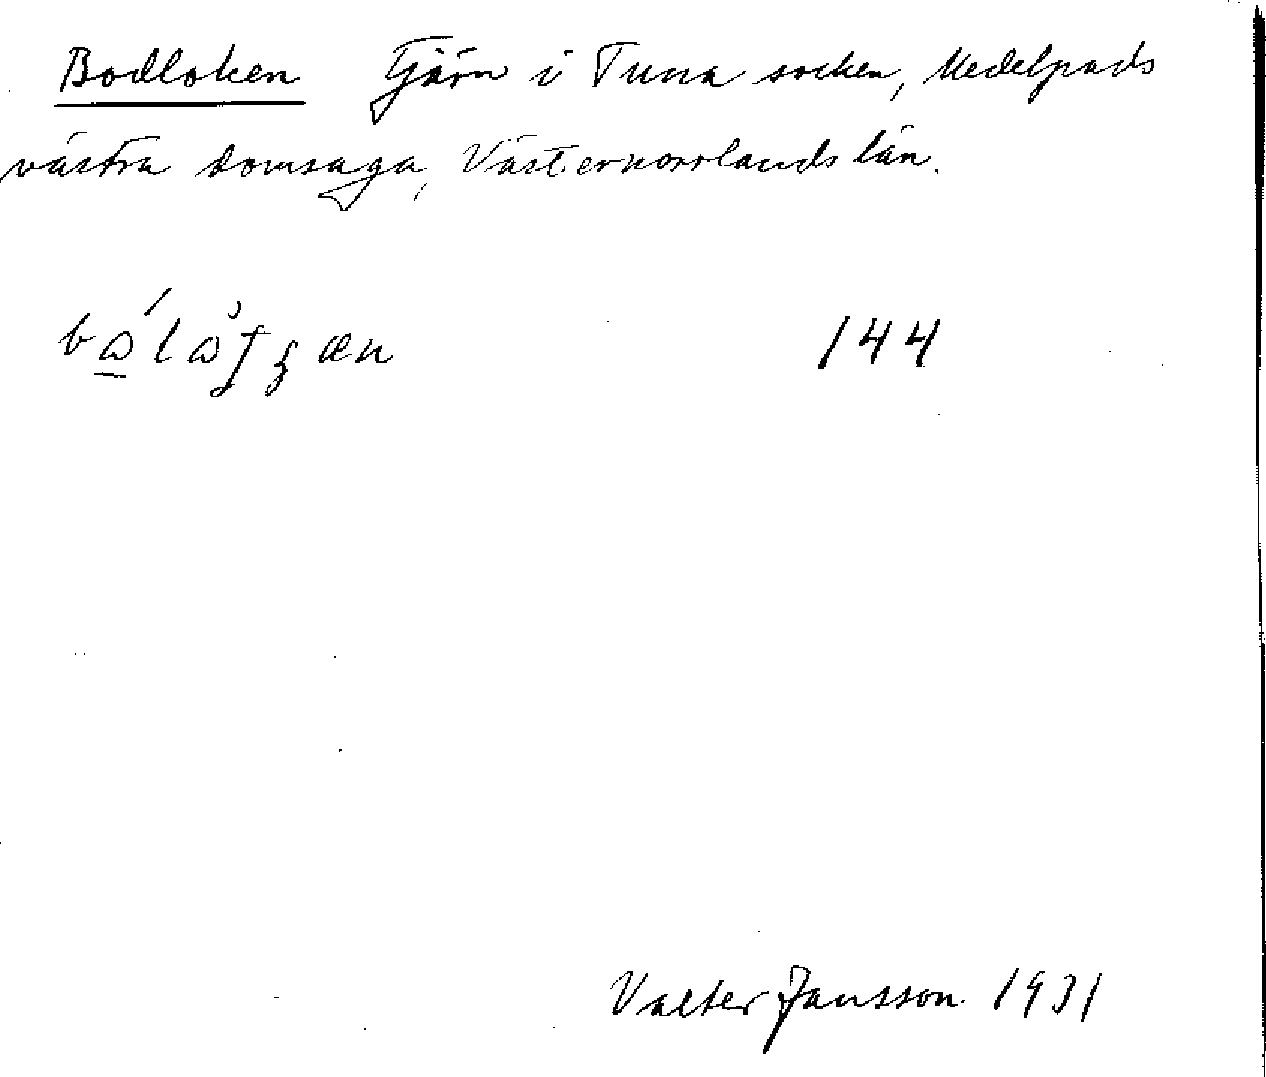 Bodloken Tjärn i Tuna socken, Medelpads
västra domsaga, Västernorrlands län.
144
Valter Jansson 1931